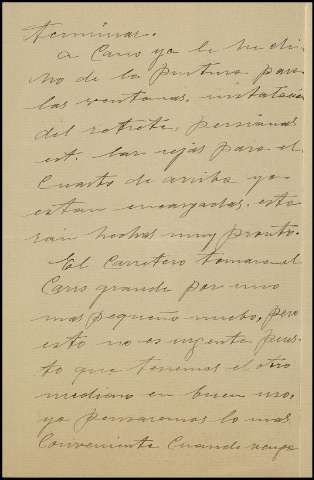 terminar.
A Cano ya le he di
cho de la pintura para
las ventanas, instalacion
del retrete, persianas
est. las rejas para el
Cuarto de arriba ya
estan encargadas, esta
rán hechas muy pronto.
El Carretero tomara el
Carro grande por uno
mas pequeño nuebo, pero
esto no es urgente pues
to que tenemos el otro
mediano en buen uso,
ya pensaremos lo mas
Conveniente Cuando venga